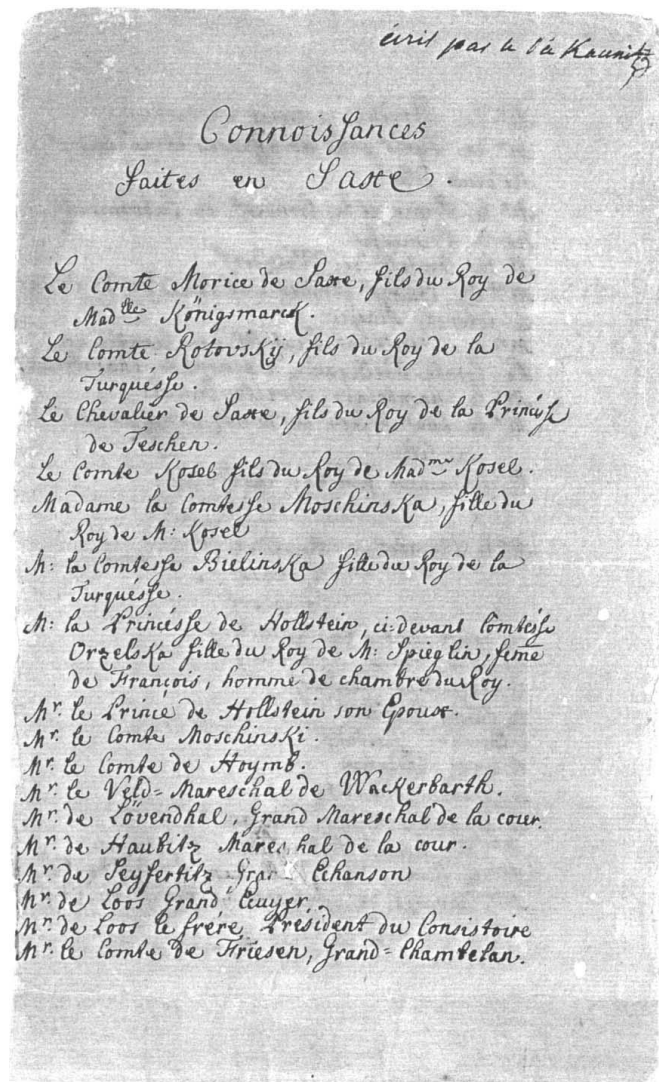 écrit par le Cte Kaunitz
Connoissances
faites en Saxe.
Le Comte Morice de Saxe, fils du Roy de
Mad^lle Königsmarck.
Le Comte Rotovskÿ, fils du Roy de la
Turquésse.
Le Chevalier de Saxe, fils du Roy de la Princésse
de Teschen.
Le Comte Kosel fils du Roy de Mad^me Kosel.
Madame la Comtesse Moschinska, fille du
Roy de M: Kosel
M: la Comtesse Bielinska fille du Roy de la
Turquésse.
M: la Princésse de Hollstein, ci=devant Comtésse
Orzelska fille du Roy de M: Spieglin, feme
de François, homme de chambre du Roy.
M^r. le Prince de Hollstein son Epoux.
M^r. le Comte Moschinski.
M^r. le Comte de Hoymb.
M^r. le Veld=Mareschal de Wackerbarth.
M^r. de Lövendhal, Grand Mareschal de la cour.
M^r. de Haubitz Mareschal de la cour.
M^r. de Seyfertitz Grand Echanson
M^r. de Loos Grand Ecuyer.
M^r. de Loos le frére, Président du Consistoire
M^r. le Comte de Friesen, Grand=Chambelan.